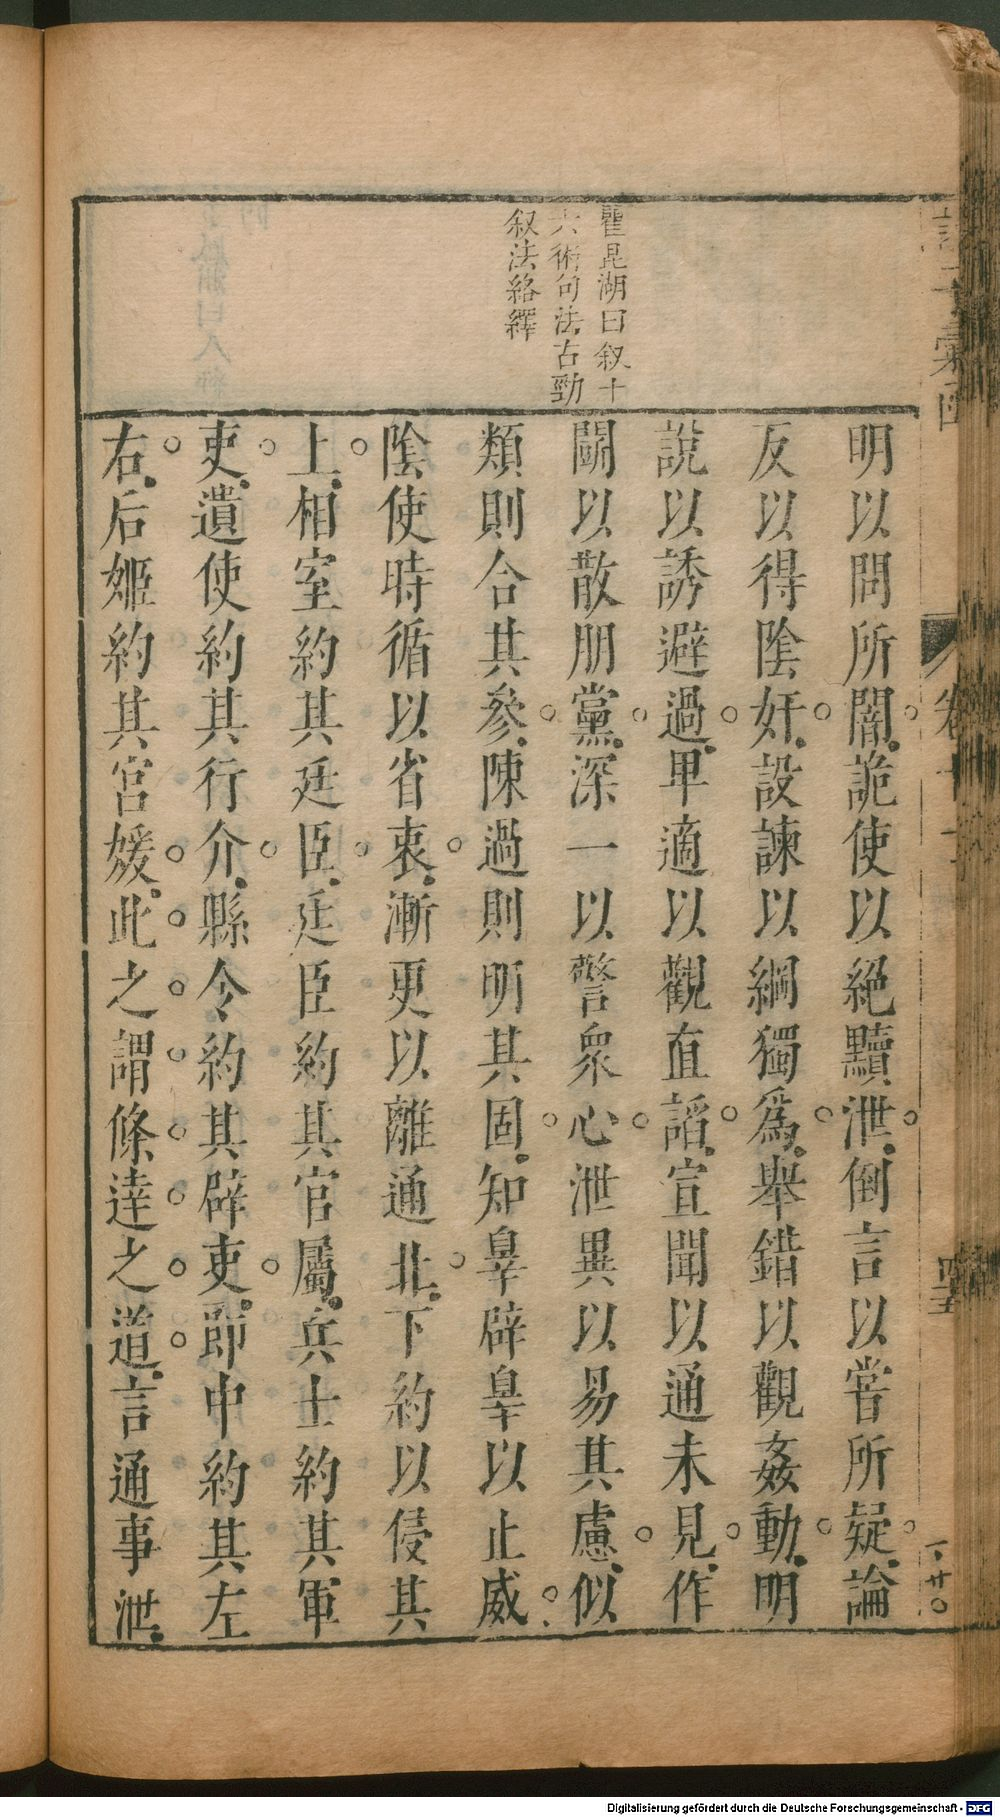 瞿昆湖曰叙十
六術句法古勁
叙法絡繹
明以問所闇詭使以絕黷泄倒言以嘗所疑論
反以得陰奸設諫以綱獨爲舉錯以觀姦動明
說以誘避過卑適以觀直謟宣聞以通未見作
鬭以散朋黨深一以警衆心泄異以易其慮似
類則合其參陳過則明其固知辠辟辠以止威
陰使時循以省衷漸更以離通北下約以侵其
上相室約其廷臣廷臣約其官屬兵士約其軍
吏遺使約其行介縣令約其辟吏郎中約其左
右后姬約其宮媛此之謂條達之道言通事泄
Digitalisierung gefördert durch die Deutsche Forschungsgemeinschaft - DFG